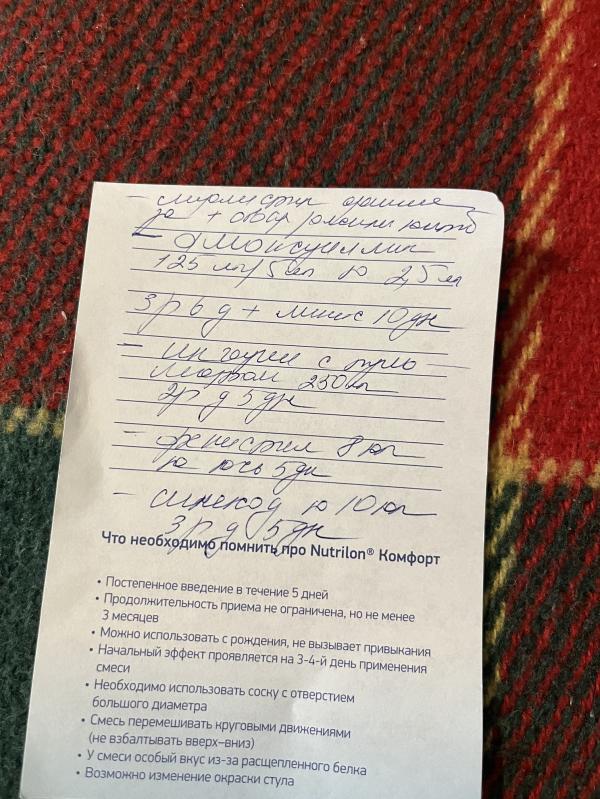 -
+ отвар
- Амоксициллин
125 мг/5мл по 2,5 мл
3 р в д + линекс 10 дн
- ингаляции с пуль
микортом 250 мкг
2 р д 5 дн
- фенистил 8 кап
на ночь 5 дн
- синекод по 10 кап
3 р д 5 дн
Что необходимо помнить про Nutrilon® Комфорт
• Постепенное введение в течение 5 дней
• Продолжительность приема не ограничена, но не менее
3 месяцев
• Можно использовать с рождения, не вызывает привыкания
• Начальный эффект проявляется на 3-4-й день применения
смеси
• Необходимо использовать соску с отверстием
большого диаметра
• Смесь перемешивать круговыми движениями
(не взбалтывать вверх–вниз)
• У смеси особый вкус из-за расщепленного белка
• Возможно изменение окраски стула